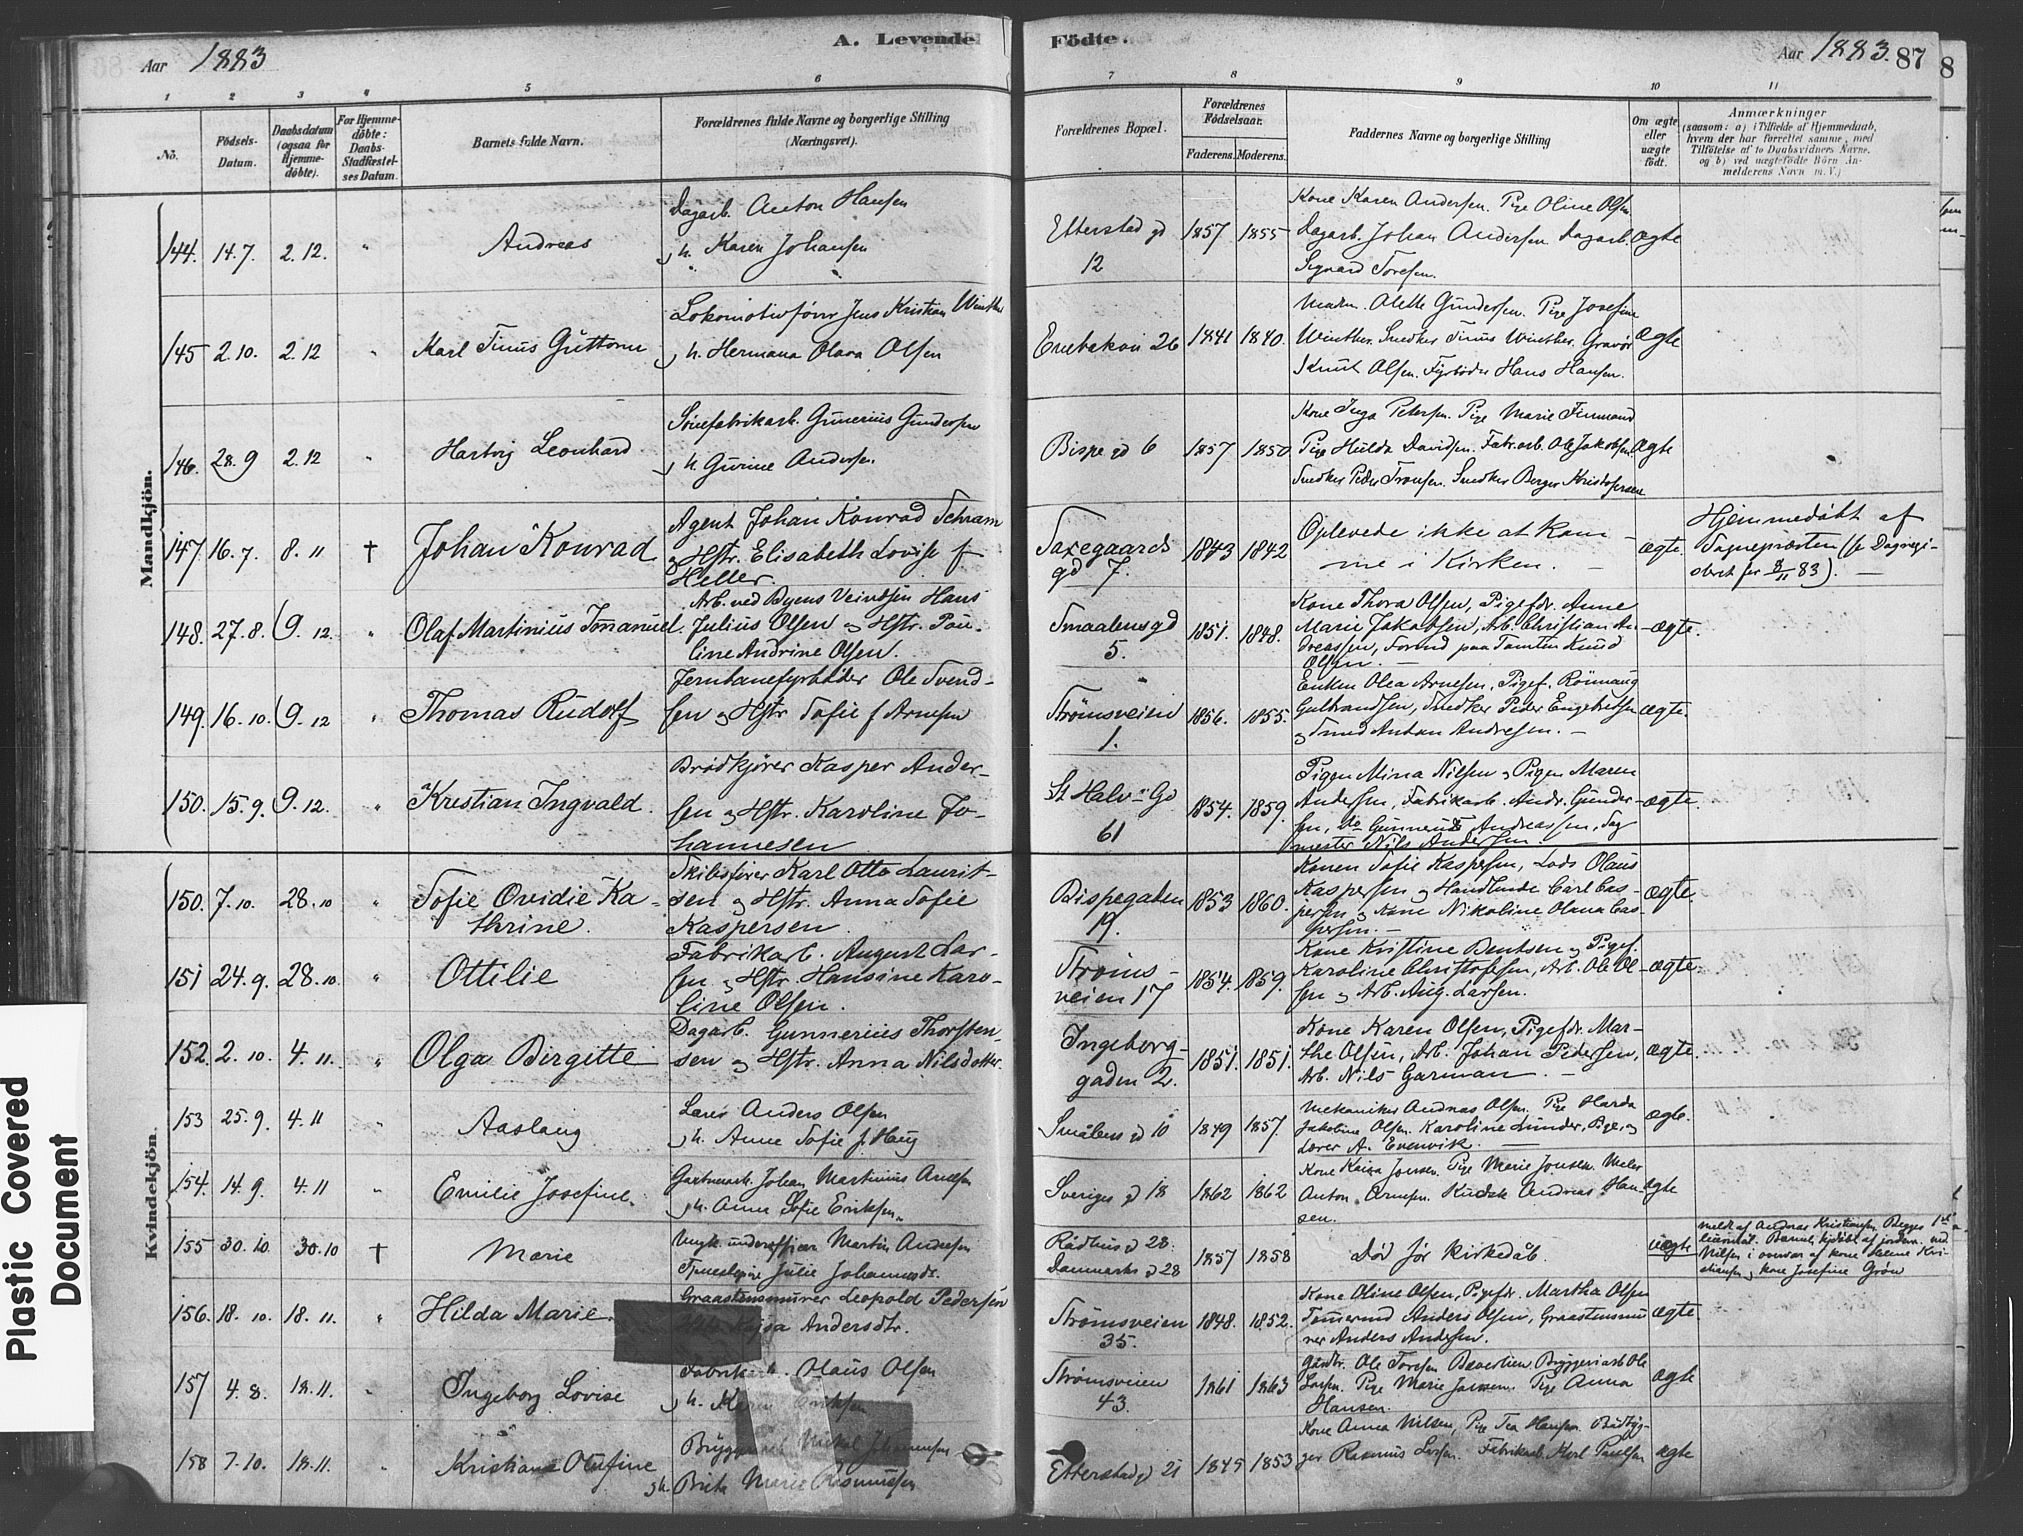 Aar 1883
A. Levende Födte.
Aar 1883. 87
1 2 3 4 5 6 7 8 9 10 11
No.
Födsels-Datum.
Daabsdatum (ogsaa for Hjemme-döbte).
For Hjemme-döbte: Daabs-Stadfæstel-ses Datum.
Barnets fulde Navn.
Forældrenes fulde Navne og borgerlige Stilling (Næringsvei).
Forældrenes Bopæl.
Forældrenes Födselsaar.
Faderens. Moderens.
Faddernes Navne og borgerlige Stilling
Om ægte eller uægte födt.
Anmærkninger
(saasom: a) i Tilfælde af Hjemmedaab, hvem der har forrettet samme, med Tilföielse af to Daabsvidners Navne. og b) ved uægte födte Börn An-melderens Navn m. V.)
Mandkjön.
144. 14.7. 2.12. " Andreas
Dagarb. Anton Hansen
og H. Karen Johansen
Etterstad gd 12 1857 1855
Kone Karen Andersen. Pige Oline Olsen
Dagarb. Johan Andersen. Dagarb.
Sigvard Toresen.
ægte
145 2.10. 2.12 " Karl Tinus Guttorm
Lokomotivfører Jens Kristian Winther
og H. Hermana Olava Olsen
Enebakvei 26 1841 1840.
Madm. Olette Gundersen. Pige Josefine
Winther. Snedker Tinus Winther. Gravør
Knut Olsen. Fyrbøder Hans Hansen.
ægte
146. 28.9 2.12 " Hartvig Leonhard
Gunerius Gundersen
og H. Gurine Andersen.
Bispe gd 6 1857 1850
Kone Inga Petersen. Pige Marie Finmand
Pige Hulda Davidsen. Fabr.arb. Ole Jakobsen.
Snedker Peder Tronsen. Snedker Berger Kristofersen
ægte
147. 16.7. 8.11 † Johan Konrad
Agent Johan Konrad Schram
og Hstr. Elisabeth Lovise f
Heller.
Saxegaards gd 7. 1843 1842
Oplevede ikke at kom-
me i Kirken. —
ægte.
Hjemmedöbt af
Sognepræsten (se Dagregi-
steret for 8/11 83). —
148. 27.8. 9.12 " Olaf Martinius Immanuel.
Arb. ved Byens Veivæsen Hans
Julius Olsen og Hstr. Pau-
line Andrine Olsen.
Smaalensgd 5. 1851. 1848.
Kone Thora Olsen, Pigefdr. Anne
Marie Jakobsen, Arb. Christian An-
dreassen, Formd paa Tomten Knud
Olsen. —
ægte.
149. 16.10. 9.12 " Thomas Rudolf
Jernbanefyrbøder Ole Svend-
sen og Hstr Sofie f Arnesen
Strømsveien 1. 1856. 1855.
Enken Olea Arnesen, Pigef. Rönnaug
Gulbrandsen, Snedker Peder Engebretsen
og Smed Anton Andresen. —
ægte.
150. 15.9. 9.12. " Kristian Ingvald.
Brødkjører Kasper Ander-
sen og Hstr. Karoline Jo-
hannesen
St Halv. Gd 61 1854. 1859.
Pigen Mina Nilsen og Pigen Maren
Andersen, Fabrikarb. Andr. Gunder-
sen, do Gunnerius Andreassen, Sag
mester Nils Andersen
ægte.
Kvindekjön.
150. 7.10. 28.10 " Sofie Ovidie Ka-
thrine.
Skibsfører Karl Otto Laurit-
sen og Hstr. Anna Sofie
Kaspersen.
Bispegaden 19. 1853 1860.
Konen Sofie Kaspersen, Lods Olaus
Kaspersen og Handlende Carl Cas-
persen og Kone Nikoline Olava Cas-
persen. —
ægte.
151 24.9. 28.10. " Ottilie
Fabrikarb. August Lar-
sen og Hstr Hansine Karo-
line Olsen.
Strøms-
veien 17 1854. 1859.
Kone Kristine Bentsen og Pigef.
Karoline Christofersen, Arb. Ole Ol-
sen og Arb. Aug. Larsen.
ægte.
152. 2.10. 4.11. " Olga Birgitte
Dagarb. Gunnerius Thorsten-
sen og Hstr. Anna Nilsdotter.
Ingeborg-
gaden 2. 1851. 1851.
Kone Karen Olsen, Pigefdr. Mar-
the Olsen, Arb. Johan Pedersen,
Arb. Nils Garman. —
ægte.
153 25.9. 4.11 " Aaslaug
Anders Olsen
og H. Anne Sofie f. Haug
Smålens gd 10 1849 1857.
Mekaniker Andreas Olsen. Pige Harda
Jakoline Olsen. Karoline Lunder, Pige, og
Lærer A. Evenvik. —
ægte.
154. 14.9. 4.11 " Emilie Josefine.
Johan Martinius Arnesen
og H. Anne Sofie Eriksen.
Sveriges gd 18 1862 1862
Kone Kaisa Jonsen. Pige Marie Jonsen. Maler
Anton Arnesen. Kudsk Andreas Han-
sen.
ægte
155 30.10. 30.10 † Marie
Ungk. underofficer Martin Andresen
Tjenestepige Julie Johannesdr.
Rådhus gd 28.
Danmarks gd 28 1857 1858
Död før kirkedåb.
uægte
meldt af Andreas Kristiansen. Begges 1ste
leiermål. Barnet hjdöbt af jordem.
Nilsen i overvær af kone Lene Kri-
stiansen og kone Josefine Grön
156. 18.10. 18.11. " Hilda Marie.
Graastensmurer Leopold Pedersen
Kajsa Andersdtr.
Strømsveien 35. 1848. 1852.
Kone Oline Olsen, Pigefdr. Martha Olsen
Tømmermd Anders Olsen, Graastensmu
rer Anders Andersen.
ægte.
157 4.8. 18.11. " Ingeborg Lovise
Olaus Olsen
og H. Karen Eriksen
Strømsveien 43. 1861 1863
Gårdbr. Ole Toresen Bæverlien. Bryggeriarb Ole
Larsen. Pige Marie Jansen. Pige Anna
Hansen.
ægte
158 7.10. 18.11. " Kristiane Olufine
Mikal Johannesen
og H. Brita Marie Rasmussen
Etterstad gd 21 1849 1853
Kone Anna Nilsen, Pige Tea Hansen. Bådbyg-
ger Rasmus Larsen. Fabrikarb. Karl Paulsen
ægte
Plastic Covered
Document